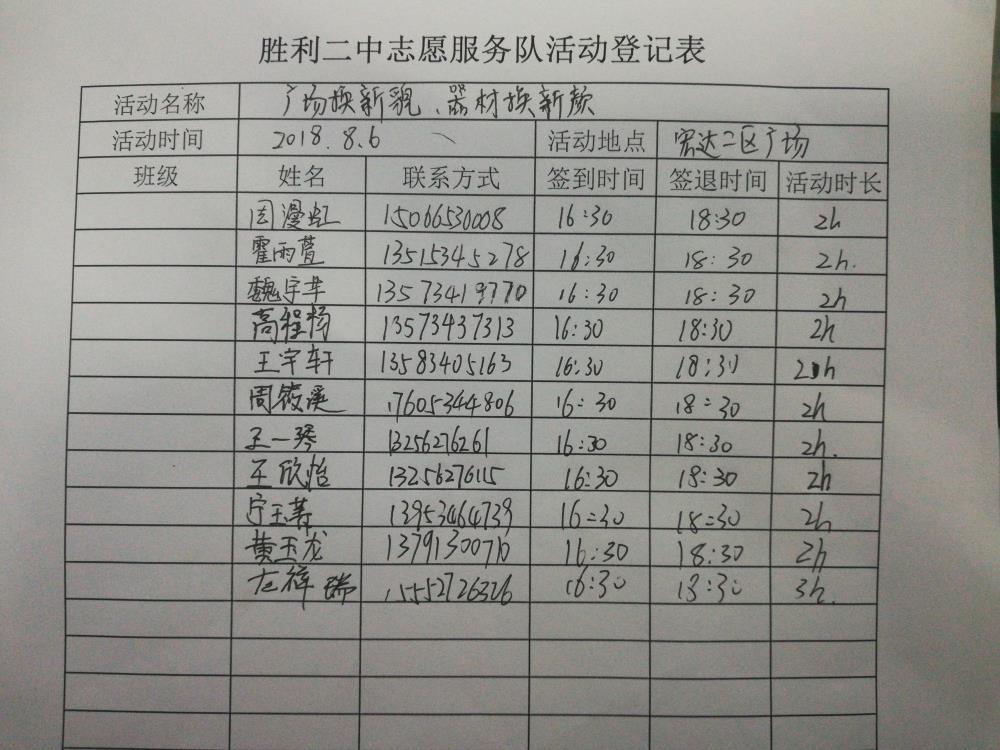 胜利二中志愿服务队活动登记表
活动名称 广场换新貌、器材换新颜
活动时间 2018.8.6 活动地点 宏达二区广场
班级 姓名 联系方式 签到时间 签退时间 活动时长
周漫虹 15066530008 16:30 18:30 2h
霍雨萱 13515345278 16:30 18:30 2h.
魏宇芊 13573419770 16:30 18:30 2h
高程杨 13573437313 16:30 18:30 2h
王宇轩 13583405163 16:30 18:30 2h
周筱溪 17605344806 16:30 18:30 2h
王一琴 13256276261 16:30 18:30 2h.
王欣怡 13256276115 16:30 18:30 2h
宁玉菁 13953464739 16:30 18:30 2h
黄玉龙 13791300710 16:30 18:30 2h
左祥瑞 15552726326 16:30 18:30 3h.